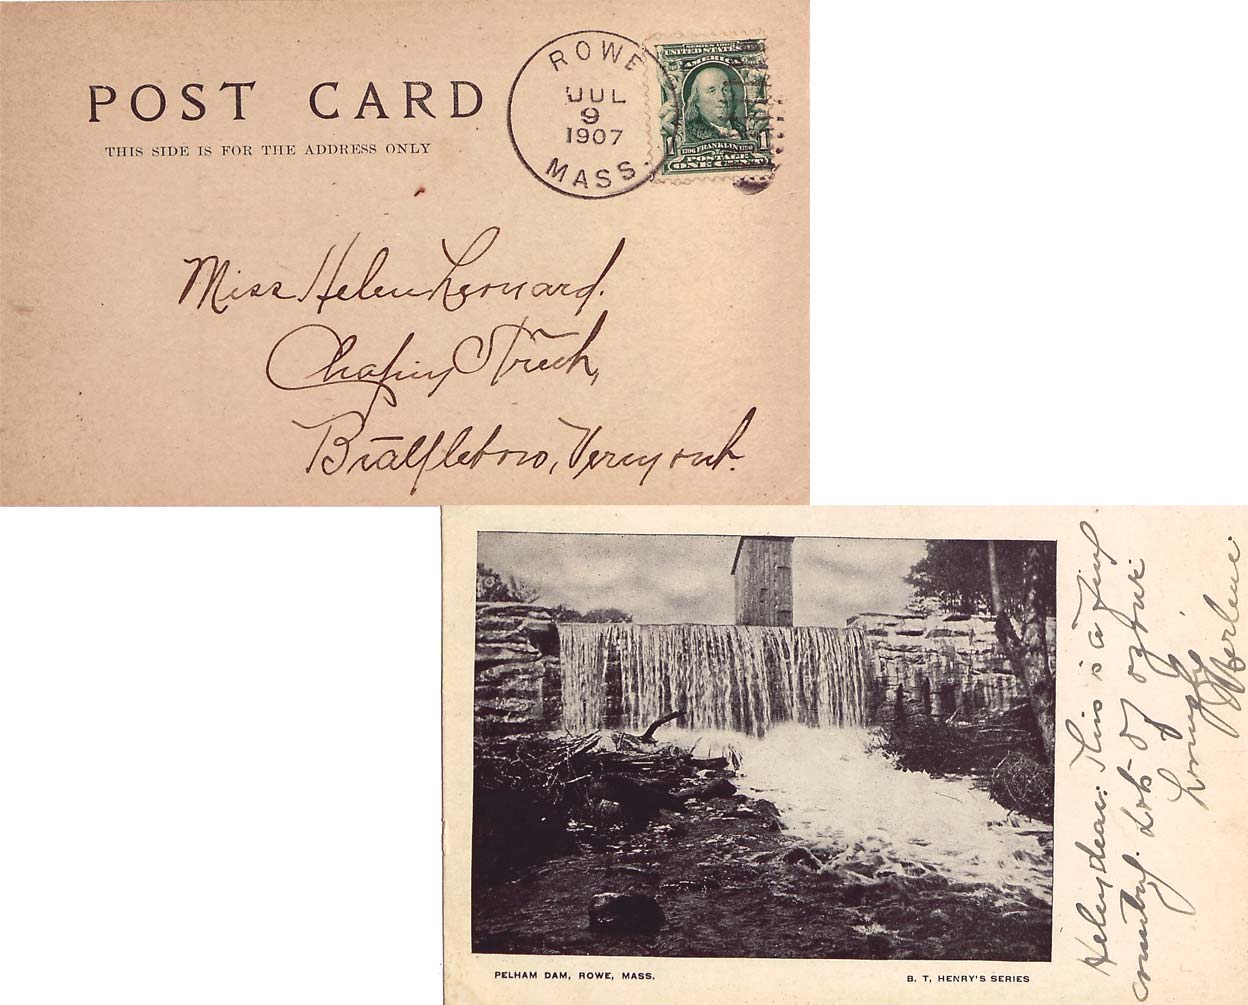 POST CARD
THIS SIDE IS FOR THE ADDRESS ONLY
ROWE
JUL
9
1907
MASS.
SERIES 1902
UNITED STATES OF
AMERICA
1706 FRANKLIN 1790
1 POSTAGE 1
ONE CENT
Miss Helen Leonard.
Chapin Street,
Brattleboro, Vermont.
PELHAM DAM, ROWE, MASS.
B. T. HENRY'S SERIES
Helen dear: This is a fine
country. Lots of ozone
Lovingly
Merlene